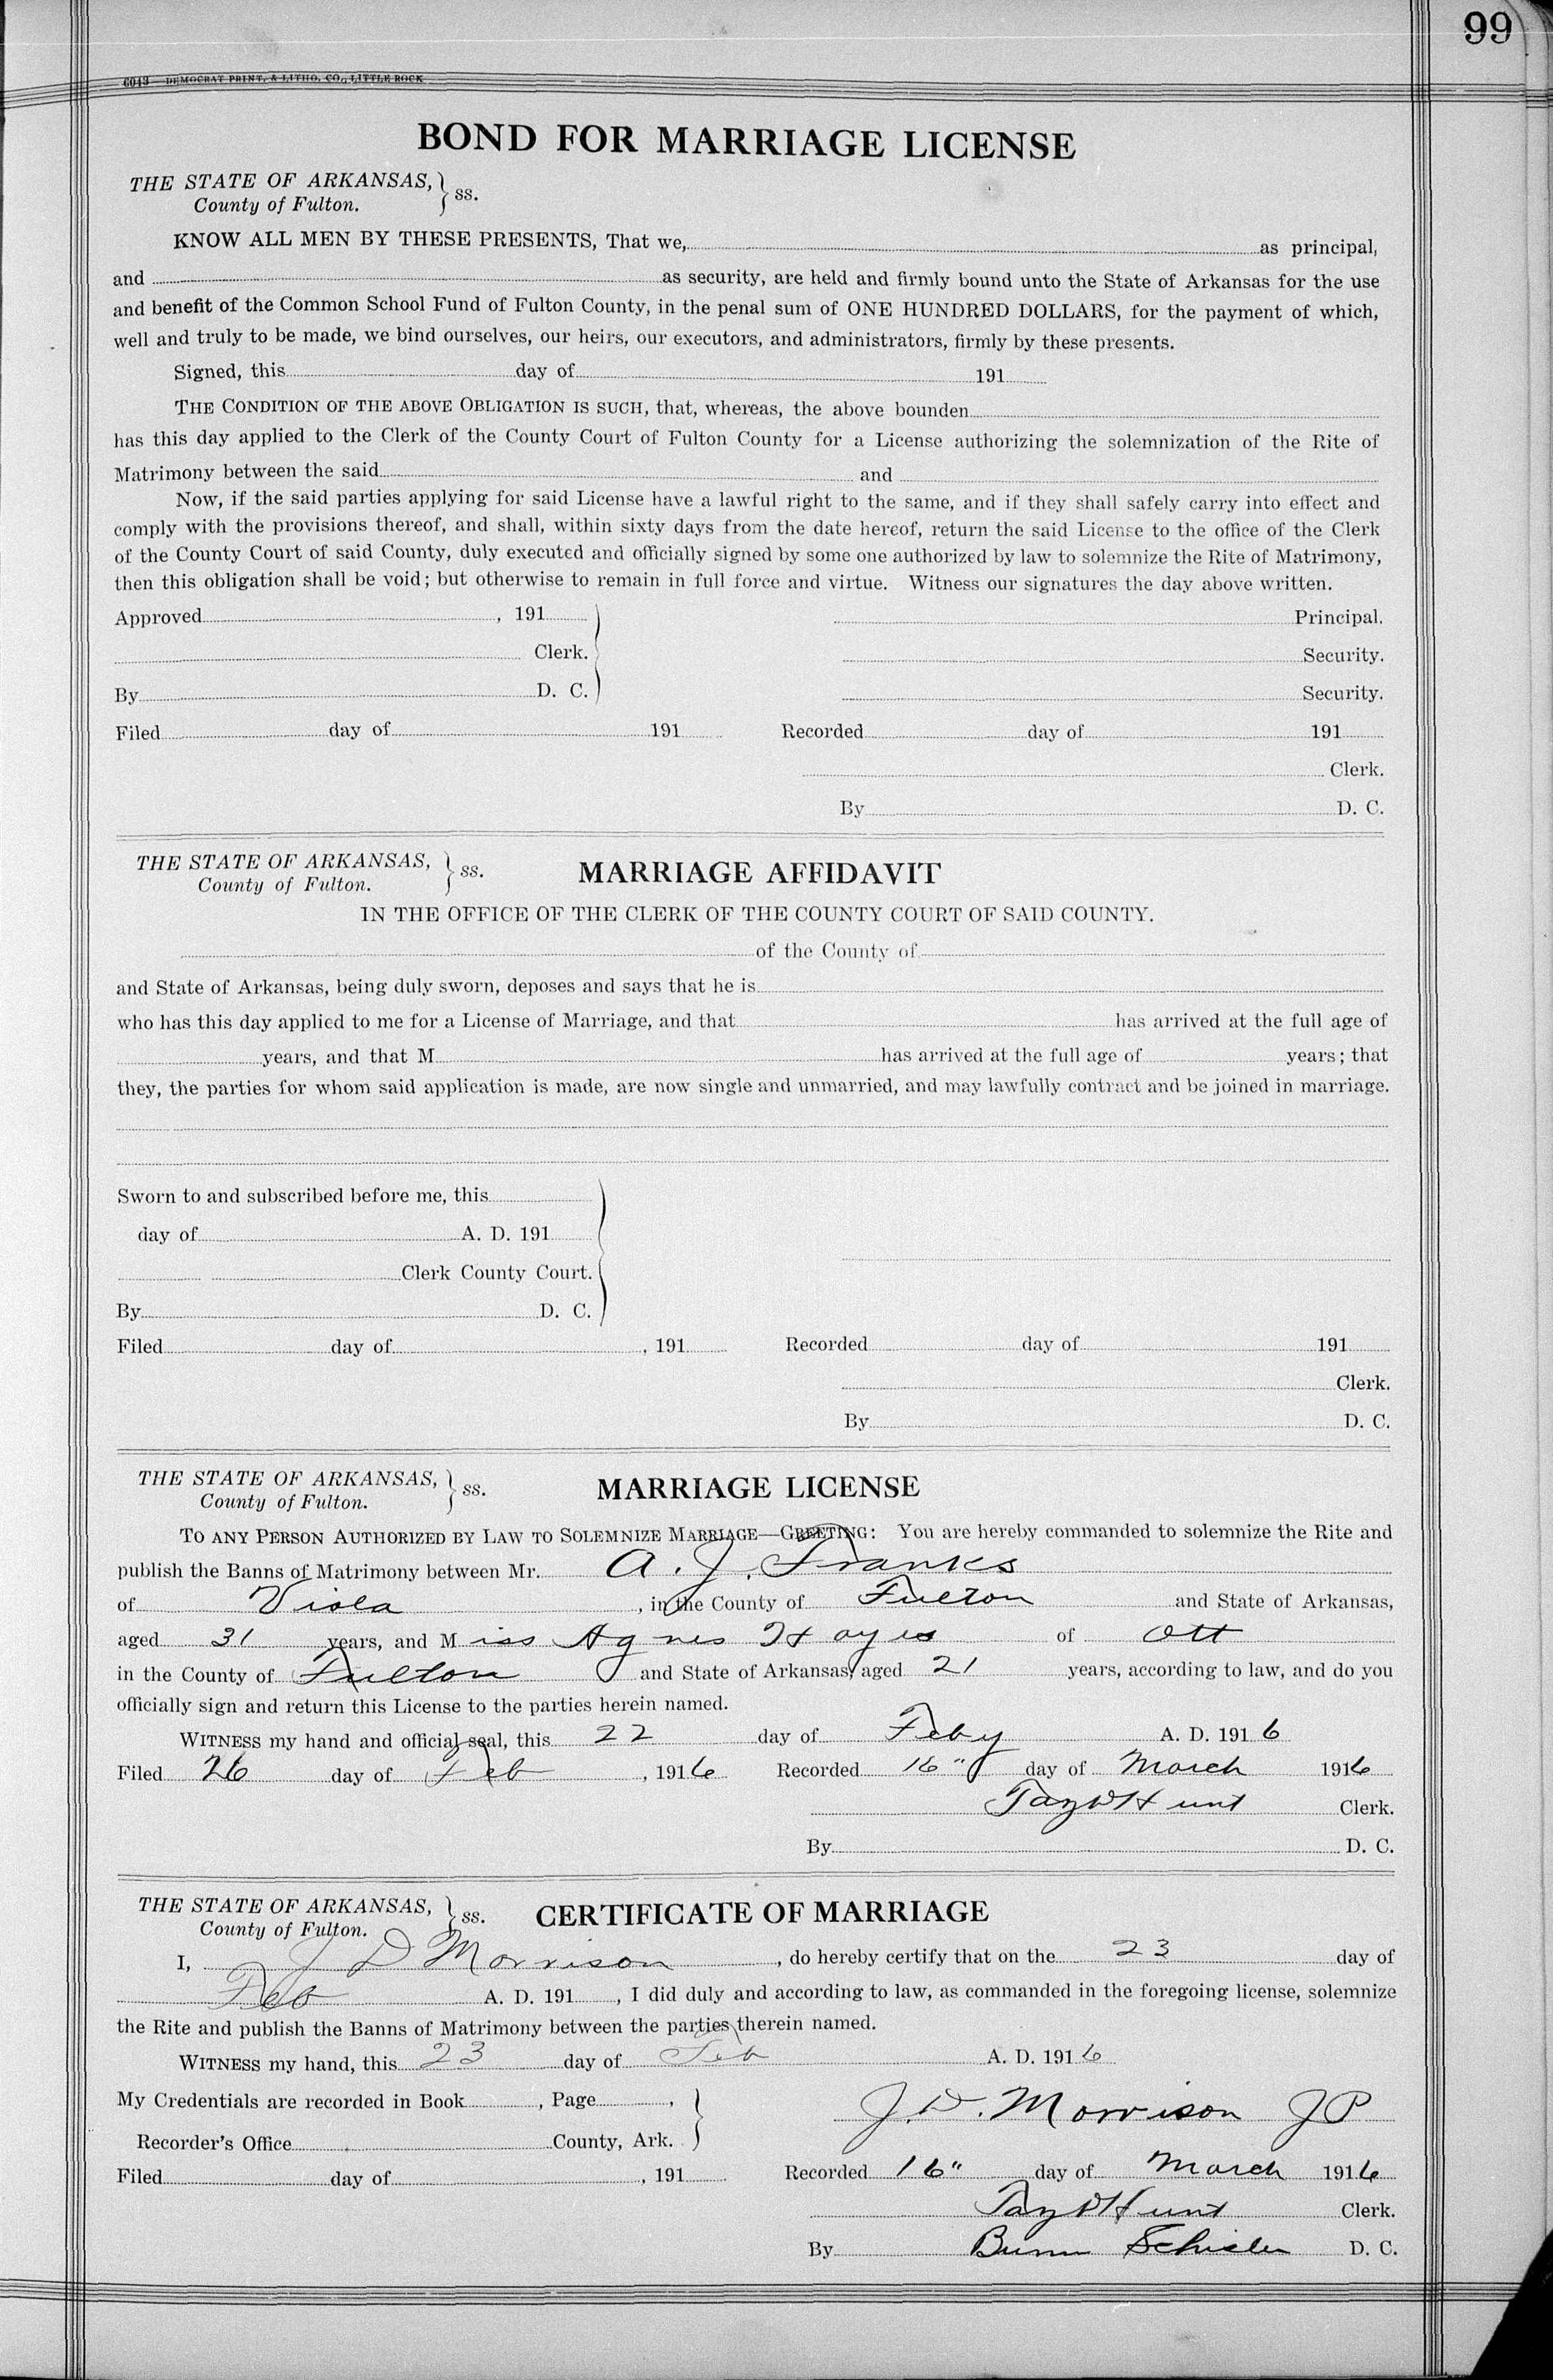 99
6043 DEMOCRAT PRINT. & LITHO. CO., LITTLE ROCK
BOND FOR MARRIAGE LICENSE
THE STATE OF ARKANSAS,
County of Fulton. } ss.
KNOW ALL MEN BY THESE PRESENTS, That we, as principal,
and as security, are held and firmly bound unto the State of Arkansas for the use
and benefit of the Common School Fund of Fulton County, in the penal sum of ONE HUNDRED DOLLARS, for the payment of which,
well and truly to be made, we bind ourselves, our heirs, our executors, and administrators, firmly by these presents.
Signed, this day of 191
THE CONDITION OF THE ABOVE OBLIGATION IS SUCH, that, whereas, the above bounden
has this day applied to the Clerk of the County Court of Fulton County for a License authorizing the solemnization of the Rite of
Matrimony between the said and
Now, if the said parties applying for said License have a lawful right to the same, and if they shall safely carry into effect and
comply with the provisions thereof, and shall, within sixty days from the date hereof, return the said License to the office of the Clerk
of the County Court of said County, duly executed and officially signed by some one authorized by law to solemnize the Rite of Matrimony,
then this obligation shall be void; but otherwise to remain in full force and virtue. Witness our signatures the day above written.
Approved , 191 Principal.
Clerk. Security.
By D. C. Security.
Filed day of 191 Recorded day of 191
Clerk.
By D. C.
THE STATE OF ARKANSAS,
County of Fulton. } ss. MARRIAGE AFFIDAVIT
IN THE OFFICE OF THE CLERK OF THE COUNTY COURT OF SAID COUNTY.
of the County of
and State of Arkansas, being duly sworn, deposes and says that he is
who has this day applied to me for a License of Marriage, and that has arrived at the full age of
years, and that M has arrived at the full age of years; that
they, the parties for whom said application is made, are now single and unmarried, and may lawfully contract and be joined in marriage.
Sworn to and subscribed before me, this
day of A. D. 191
Clerk County Court.
By D. C.
Filed day of , 191 Recorded day of 191
Clerk.
By D. C.
THE STATE OF ARKANSAS,
County of Fulton. } ss. MARRIAGE LICENSE
TO ANY PERSON AUTHORIZED BY LAW TO SOLEMNIZE MARRIAGE—GREETING: You are hereby commanded to solemnize the Rite and
publish the Banns of Matrimony between Mr. A. J. Franks
of Viola , in the County of Fulton and State of Arkansas,
aged 31 years, and Miss Agnes Hayes of Ott
in the County of Fulton and State of Arkansas, aged 21 years, according to law, and do you
officially sign and return this License to the parties herein named.
WITNESS my hand and official seal, this 22 day of Feby A. D. 1916
Filed 26 day of Feb , 1916 Recorded 16" day of March 1916
Tazw Hunt Clerk.
By D. C.
THE STATE OF ARKANSAS,
County of Fulton. } ss. CERTIFICATE OF MARRIAGE
I, J D Morrison , do hereby certify that on the 23 day of
Feb A. D. 191 , I did duly and according to law, as commanded in the foregoing license, solemnize
the Rite and publish the Banns of Matrimony between the parties therein named.
WITNESS my hand, this 23 day of Feb A. D. 1916
My Credentials are recorded in Book , Page ,
J. D. Morrison JP
Recorder's Office County, Ark.
Filed day of , 191 Recorded 16" day of March 1916
Tazw Hunt Clerk.
By Bunn D. C.